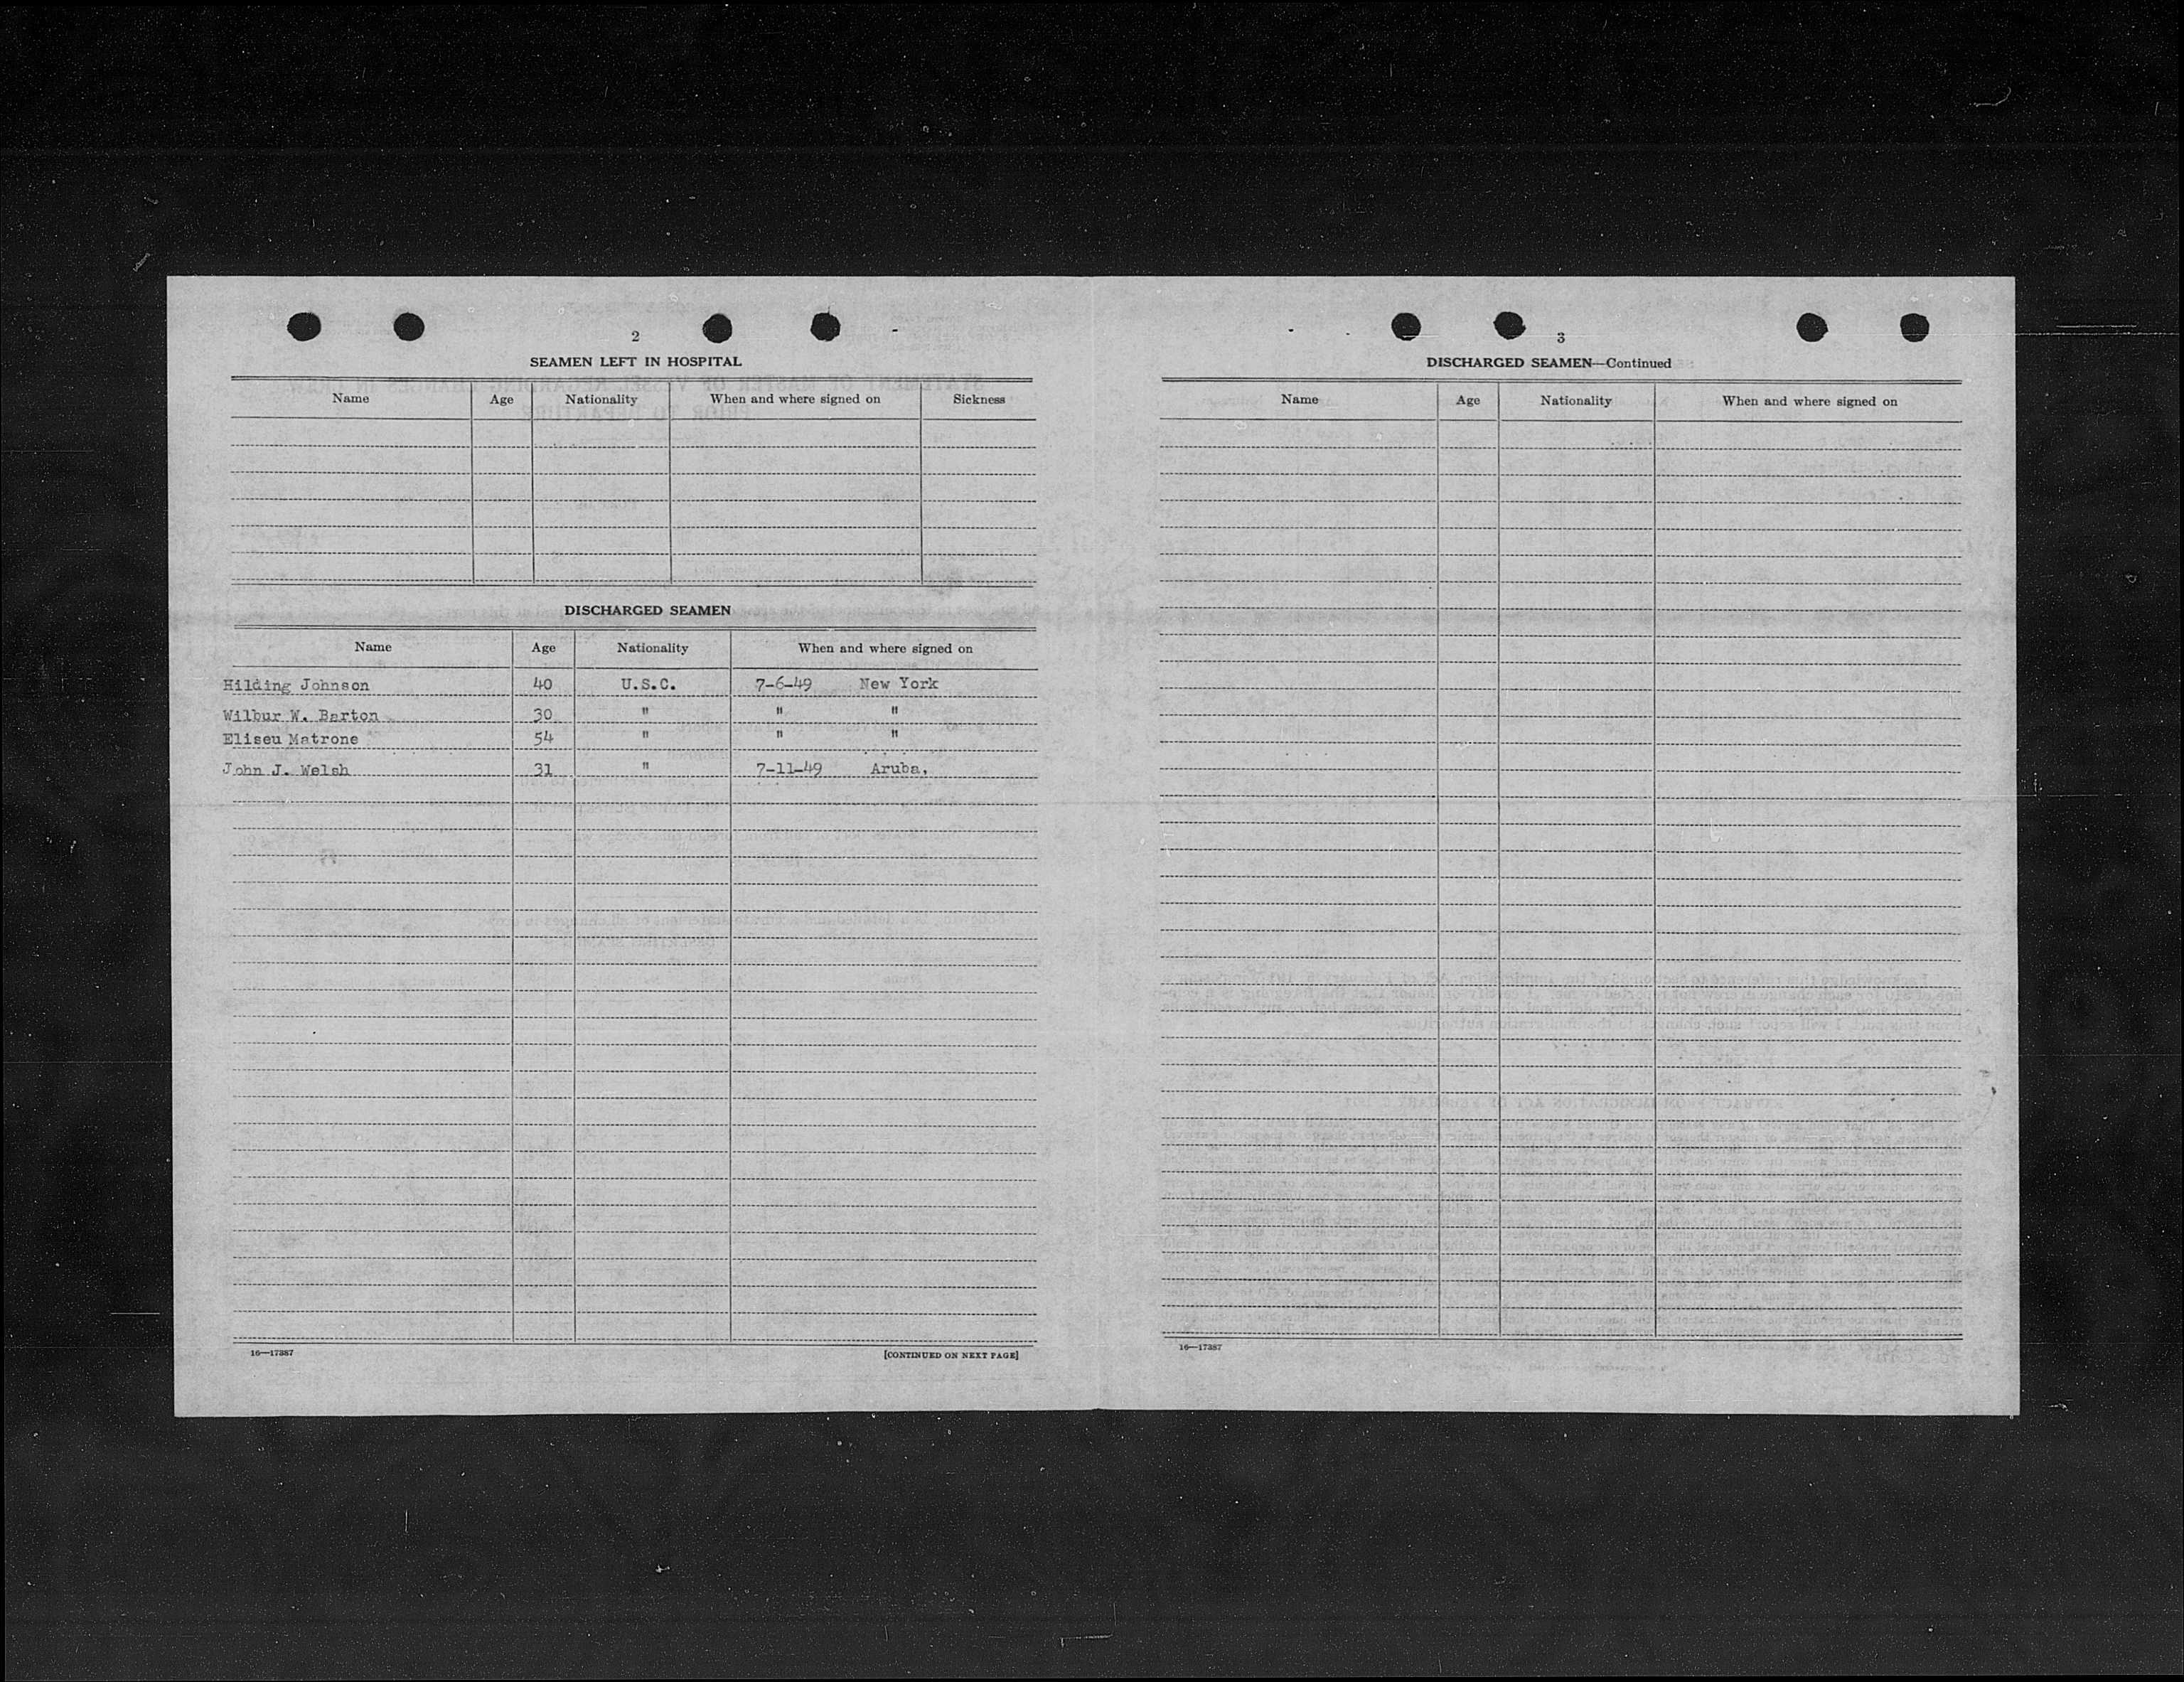 2
SEAMEN LEFT IN HOSPITAL
Name Age Nationality When and where signed on Sickness
DISCHARGED SEAMEN
Name Age Nationality When and where signed on
Hilding Johnson 40 U.S.C. 7-6-49 New York
Wilbur W. Barton 30 " " "
Eliseu Matrone 54 " " "
John J. Welsh 31 " 7-11-49 Aruba,
16—17387 [CONTINUED ON NEXT PAGE]
3
DISCHARGED SEAMEN—Continued
Name Age Nationality When and where signed on
16—17387